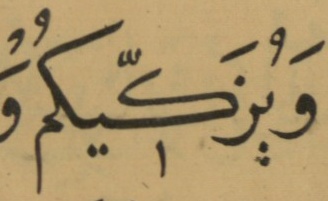 وَيُزَكِّيكُمْ وَ